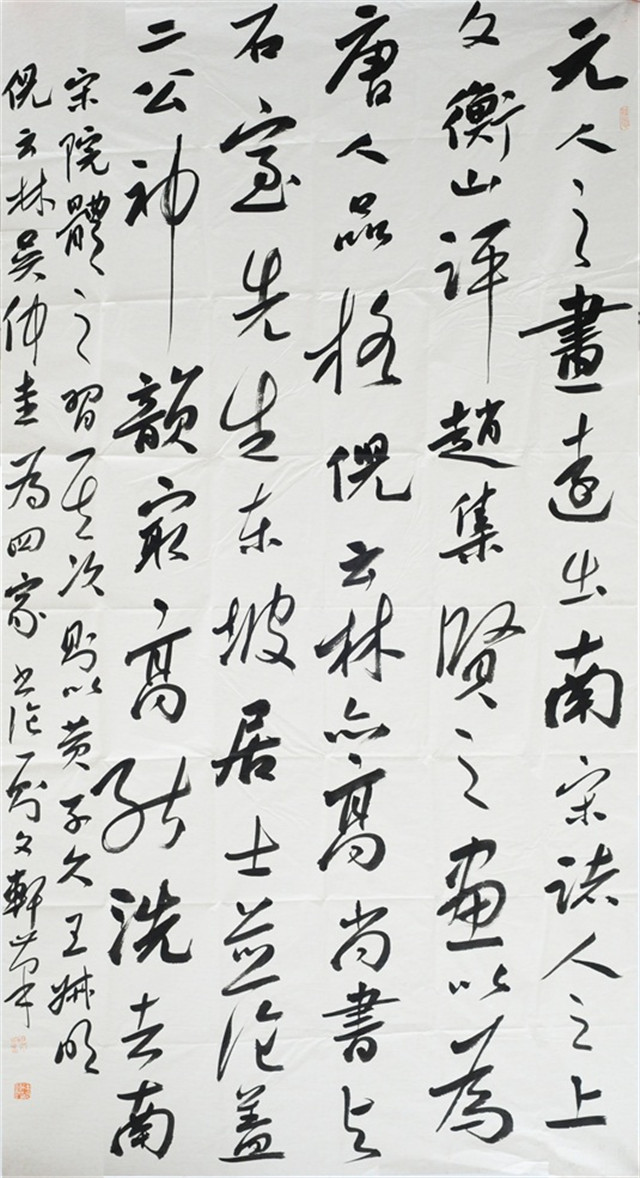 元人之畫遠出南宋諸人之上
文衡山评趙集賢之画以為
唐人品格倪云林亦以高尚書与
石室先生东坡居士並论盖
二公神韻最高能洗去南
宋院體之習其次則以黄子久王叔明
倪云林吴仲圭為四家书论一则文軒